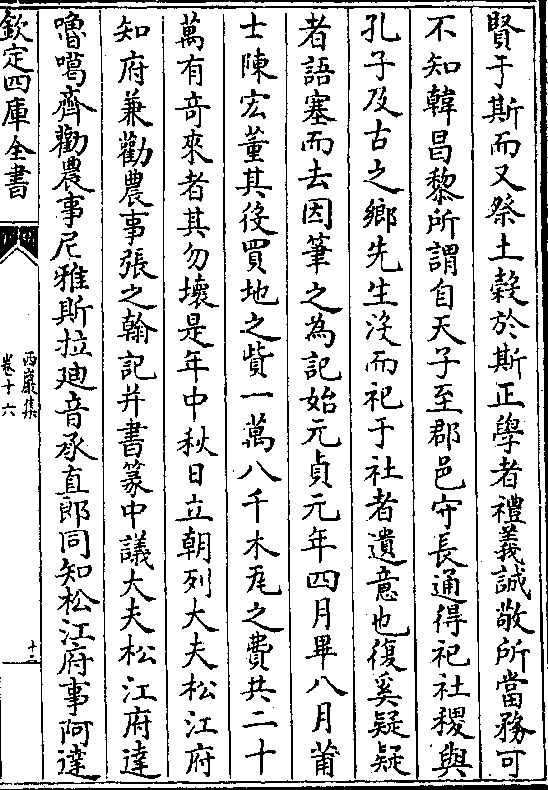 賢于斯而又祭土穀於斯正學者禮義誠敬所當務可
不知韓昌黎所謂自天子至郡邑守長通得祀社稷與
孔子及古之鄉先生沒而祀于社者遺意也復奚疑疑
者語塞而去因筆之為記始元貞元年四月畢八月莆
士陳宏董其役買地之貲一萬八千木瓦之費共二十
萬有奇來者其勿壞是年中秋日立朝列大夫松江府
知府兼勸農事張之翰記并書篆中議大夫松江府達
嚕噶齊勸農事尼雅斯拉廸音承直郎同知松江府事阿達
欽定四庫全書
西巖集
卷十六
十二